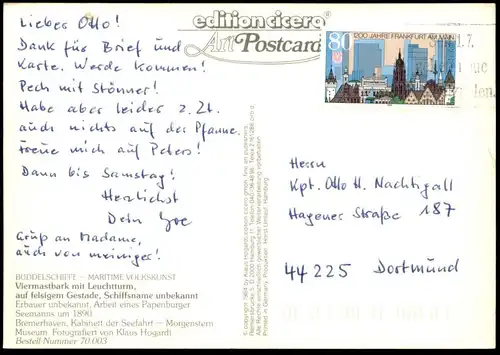 Lieber Otto!
Dank für Brief und
Karte. Werde kommen!
Pech mit Stönner!
Habe aber leider z. Zt.
auch nichts auf der Pfanne.
Freue mich auf Peters!
Dann bis Samstag!
Herzlichst
Dein
Gruß an Madame,
auch von meiniger!
BUDDELSCHIFFE – MARITIME VOLKSKUNST
Viermastbark mit Leuchtturm,
auf felsigem Gestade, Schiffsname unbekannt
Erbauer unbekannt, Arbeit eines Papenburger
Seemanns um 1890.
Bremerhaven, Kajütnett der Seefahrt – Morgenstern
Museum. Fotografiert von Klaus Hogardt
Bestell-Nummer 70.003
edition cicero®
Art Postcard
© copyright 1984 by Klaus Hogardt/edition cicero gmbh, fine art publishers,
Alle Rechte einschließlich gewerblicher Weiterverarbeitung vorbehalten
Printed in Germany, Produktion: Horst Urlauf, Hamburg
80
1200 JAHRE FRANKFURT AM MAIN
Herrn
Kpt. Otto H. Nachtigall
Hagener Straße 187
44225 Dortmund